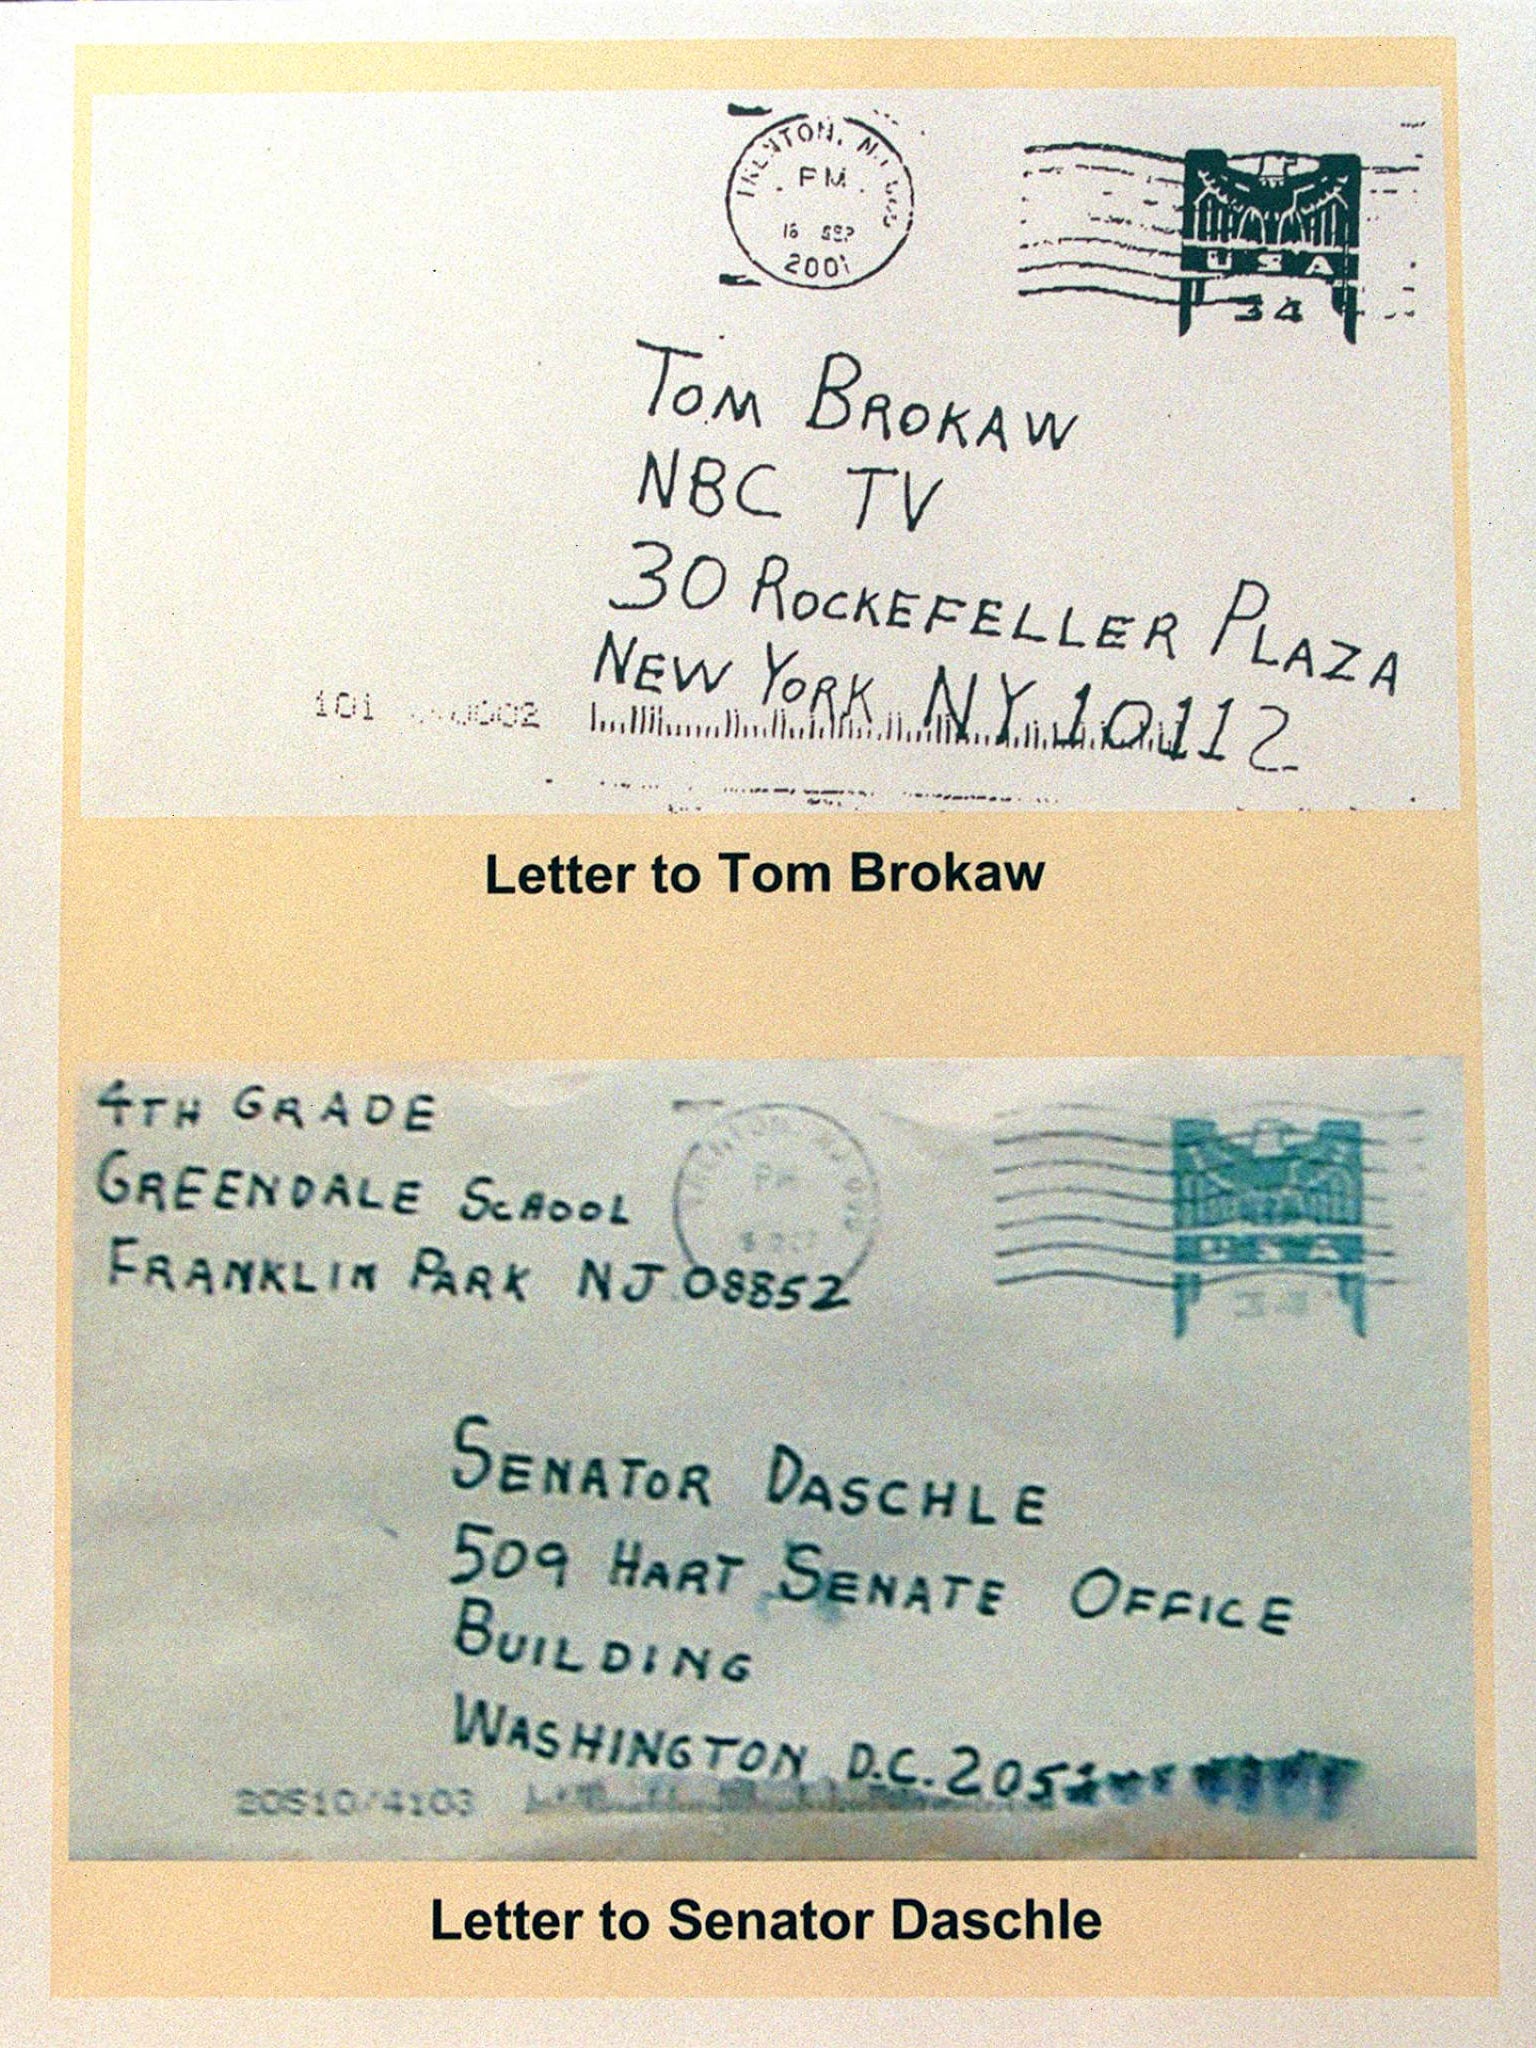 TRENTON, NJ
PM
18 SEP
2001
USA
34
TOM BROKAW
NBC TV
30 ROCKEFELLER PLAZA
NEW YORK NY 10112
101
Letter to Tom Brokaw
4TH GRADE
GREENDALE SCHOOL
FRANKLIN PARK NJ 08852
TRENTON, NJ
PM
USA
34
SENATOR DASCHLE
509 HART SENATE OFFICE
BUILDING
WASHINGTON D.C. 2051
20510/4103
Letter to Senator Daschle